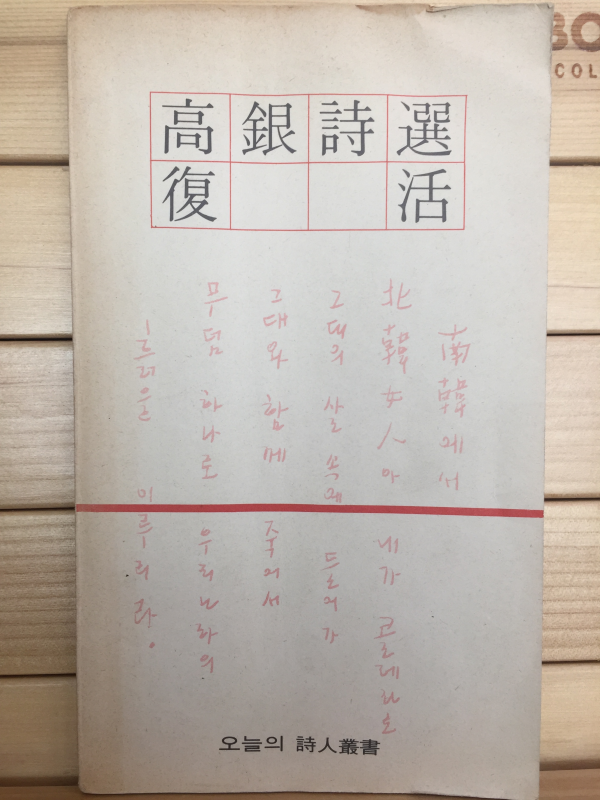 高銀詩選
復活
南韓에서
北韓女人아 내가 콜레라로
그대의 살 속에 들어가
그대와 함께 죽어서
무덤 하나로 우리나라의
흙을 이루리라.
오늘의 詩人叢書